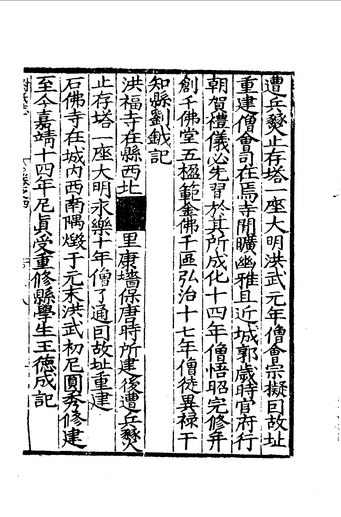 遭兵燹止存塔一座大明洪武元年僧會宗擬囙故址
重建僧會司在焉寺開曠幽雅且近城郭歲時官府行
朝賀禮儀必先習於其所成化十四年僧悟昭完修并
創千佛堂五楹範金佛千區弘治十七年僧徒異祿干
知縣劉鉞記
洪福寺在縣西北里康墻保唐時所建後遭兵燹
止存塔一座大明永樂十年僧了通囙故址重建
石佛寺在城內西南隅燬于元末洪武初尼圓秀修建
至今嘉靖十四年尼眞受重修縣學生王德成記